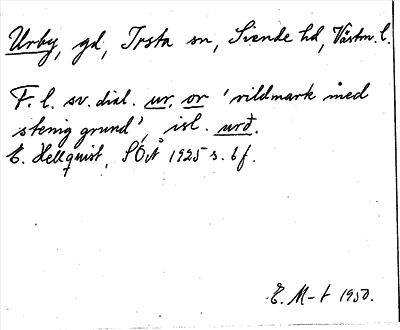 Urby, gd, Irsta sn, Siende hd, Västm. l.
F. l. sv. dial. ur, or 'vildmark med
stenig grund', isl. urð.
E. Hellquist, SOÅ 1925 s. 6 f.
E. M-t 1950.